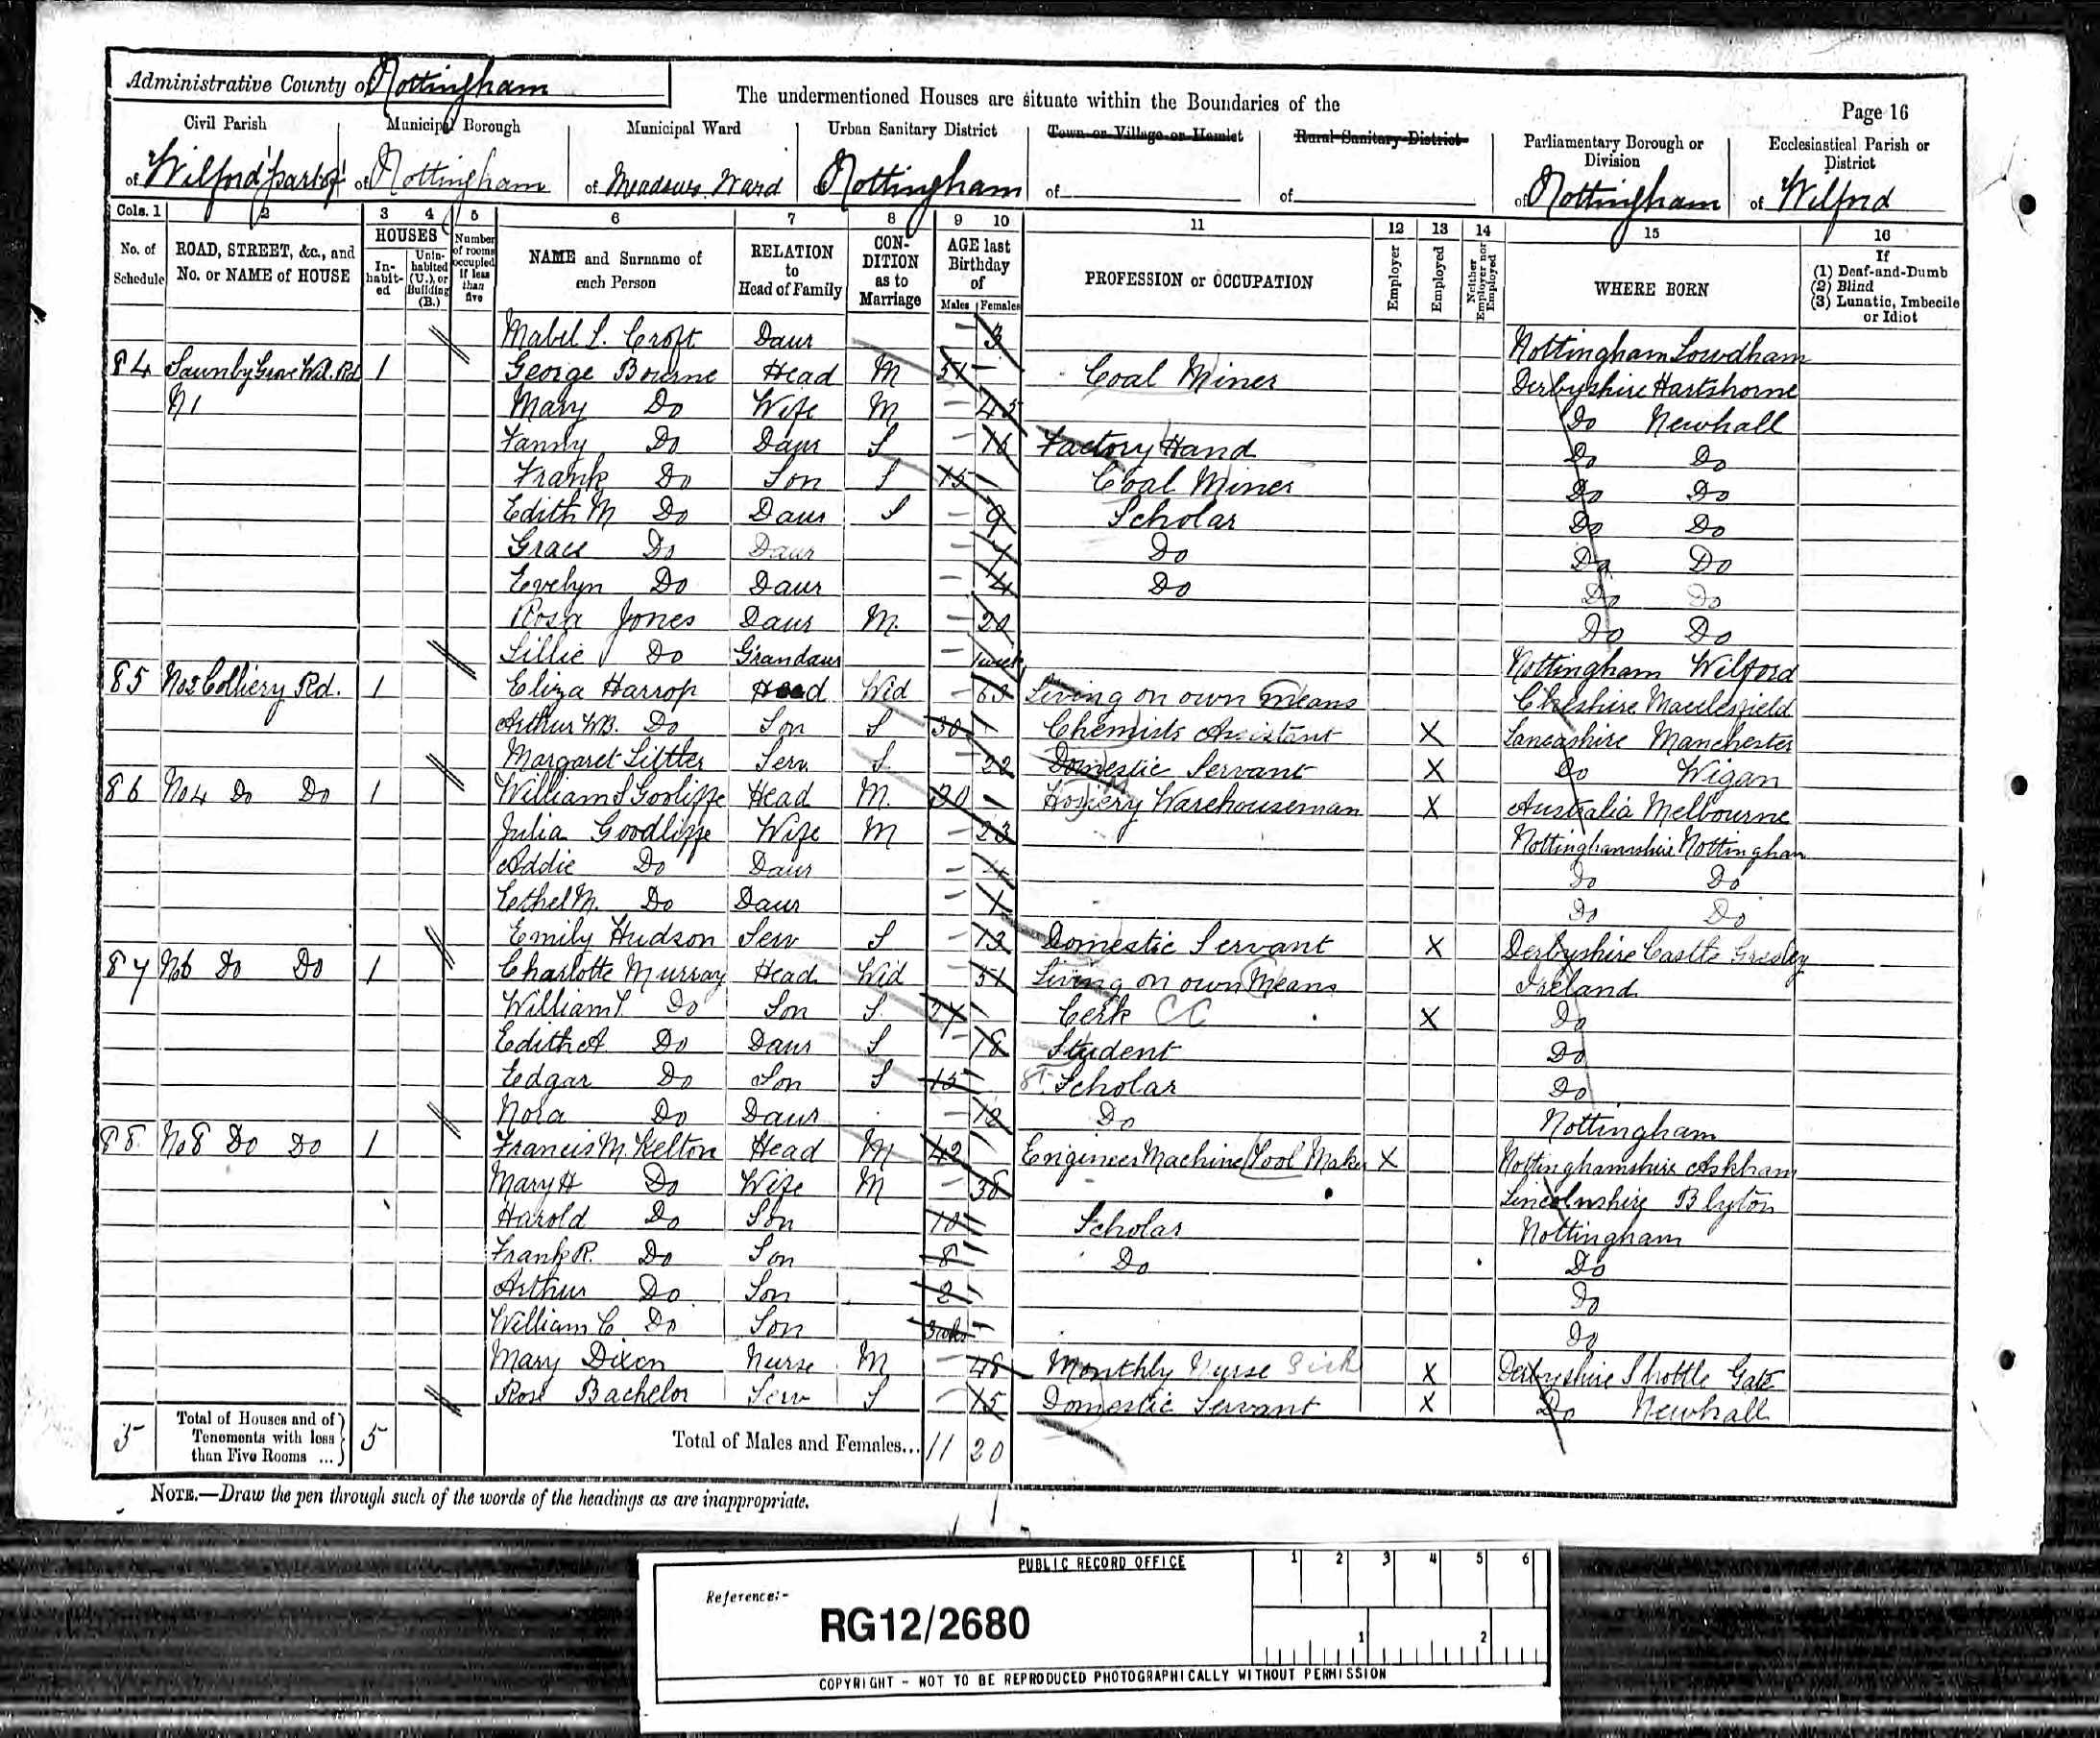 Administrative County of Nottingham
The undermentioned Houses are situate within the Boundaries of the
Page 16
Civil Parish Municipal Borough Municipal Ward Urban Sanitary District Town or Village or Hamlet Rural Sanitary District Parliamentary Borough or Division Ecclesiastical Parish or District
of Wilford part of of Nottingham of Meadows Ward Nottingham of of of Nottingham of Wilford
Cols. 1 2 3 4 5 6 7 8 9 10 11 12 13 14 15 16
No. of Schedule ROAD, STREET, &c., and No. or NAME of HOUSE HOUSES Inhabited Uninhabited (U.), or Building (B.) Number of rooms occupied if less than five NAME and Surname of each Person RELATION to Head of Family CONDITION as to Marriage AGE last Birthday of Males Females PROFESSION or OCCUPATION Employer Employed Neither Employer nor Employed WHERE BORN If (1) Deaf-and-Dumb (2) Blind (3) Lunatic, Imbecile or Idiot
Mabel L. Croft Daur – 3 Nottingham Lowdham
84 Saunby Grove Wil. Rd 1 George Bourne Head M 51 – Coal Miner Derbyshire Hartshorne
N1 Mary Do Wife M – 45 Do Newhall
Fanny Do Daur S – 16 Factory Hand Do Do
Frank Do Son S 15 – Coal Miner Do Do
Edith M Do Daur S – 9 Scholar Do Do
Grace Do Daur – Do Do Do
Evelyn Do Daur – 4 Do Do Do
Rosa Jones Daur M. – 20 Do Do
Lillie Do Grandaur – 1 week Nottingham Wilford
85 No 2 Colliery Rd. 1 Eliza Harrop Head Wid – 63 Living on own means Cheshire Macclesfield
Arthur W.B. Do Son S 30 – Chemists Assistant X Lancashire Manchester
Margaret Littler Serv S. – 22 Domestic Servant X Do Wigan
86 No 4 Do Do 1 William S Goolippe Head M. 30 – Hosiery Warehouseman M X Australia Melbourne
Julia Goodliffe Wife M – 23 Nottinghamshire Nottingham
Addie Do Daur – 4 Do Do
Ethel M. Do Daur – 1 Do Do
Emily Hudson Serv S – 13 Domestic Servant X Derbyshire Castle Gresley
87 No 6 Do Do 1 Charlotte Murray Head Wid – 51 Living on own Means Ireland
William Do Son S. 21 – Cerk CC X Do
Edith A Do Daur S – 18 Student Do
Edgar Do Son S 15 – Scholar Do
Nora Do Daur – 12 Do Nottingham
88 No 8 Do Do 1 Francis M. Kelton Head M 42 – Engineer Machine Tool Maker X Nottinghamshire Askham
Mary H Do Wife M – 38 Lincolnshire Blyton
Harold Do Son 10 – Scholar Nottingham
Frank R. Do Son 8 – Do Do
Arthur Do Son 2 – Do
William C Do Son 3 wks – Do
Mary Dixon Nurse M – 48 Monthly Nurse Sick X Derbyshire Shottle Gate
Rose Bachelor Serv S – 15 Domestic Servant X Do Newhall
5 Total of Houses and of Tenements with less than Five Rooms ... 5 Total of Males and Females... 11 20
NOTE.—Draw the pen through such of the words of the headings as are inappropriate.
PUBLIC RECORD OFFICE
1 2 3 4 5 6
Reference:-
RG12/2680
1 2
COPYRIGHT - NOT TO BE REPRODUCED PHOTOGRAPHICALLY WITHOUT PERMISSION